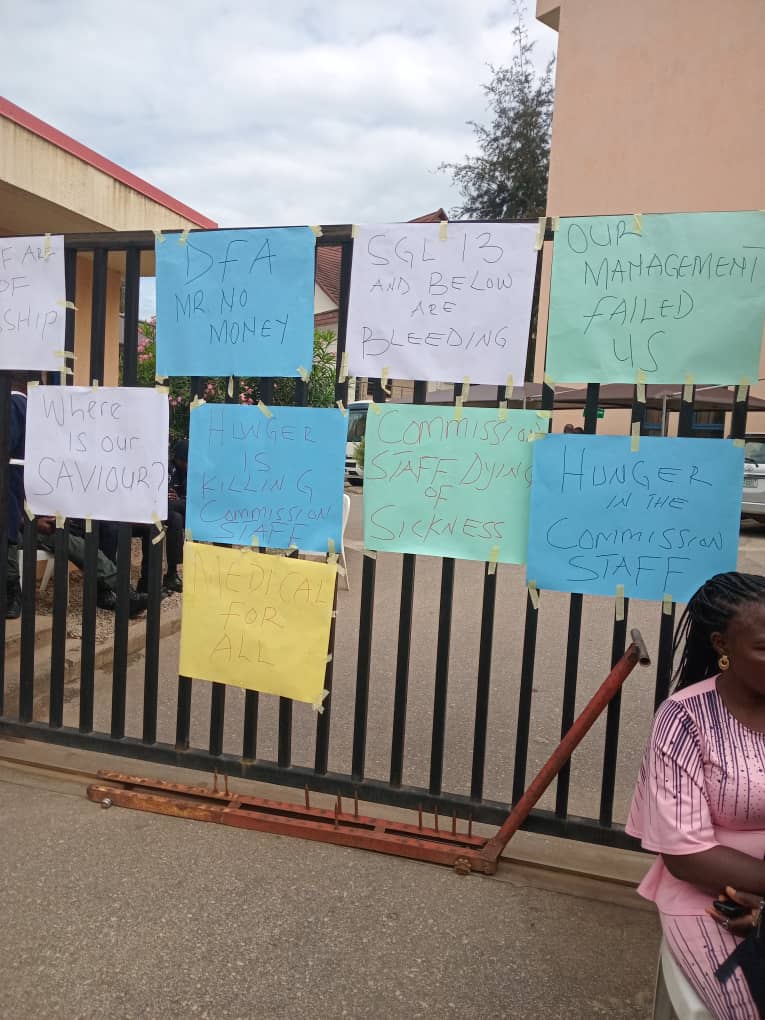 F ARE
OF
SHIP
DFA
MR NO
MONEY
SGL 13
AND BELOW
ARE
BLEEDING
OUR
MANAGEMENT
FAILED
US
Where
IS our
SAVIOUR?
HUNGER
IS
KILLING
Commission
STAFF
Commission
STAFF DYING
OF
SICKNESS
HUNGER
IN THE
Commission
STAFF
MEDICAL
FOR
ALL